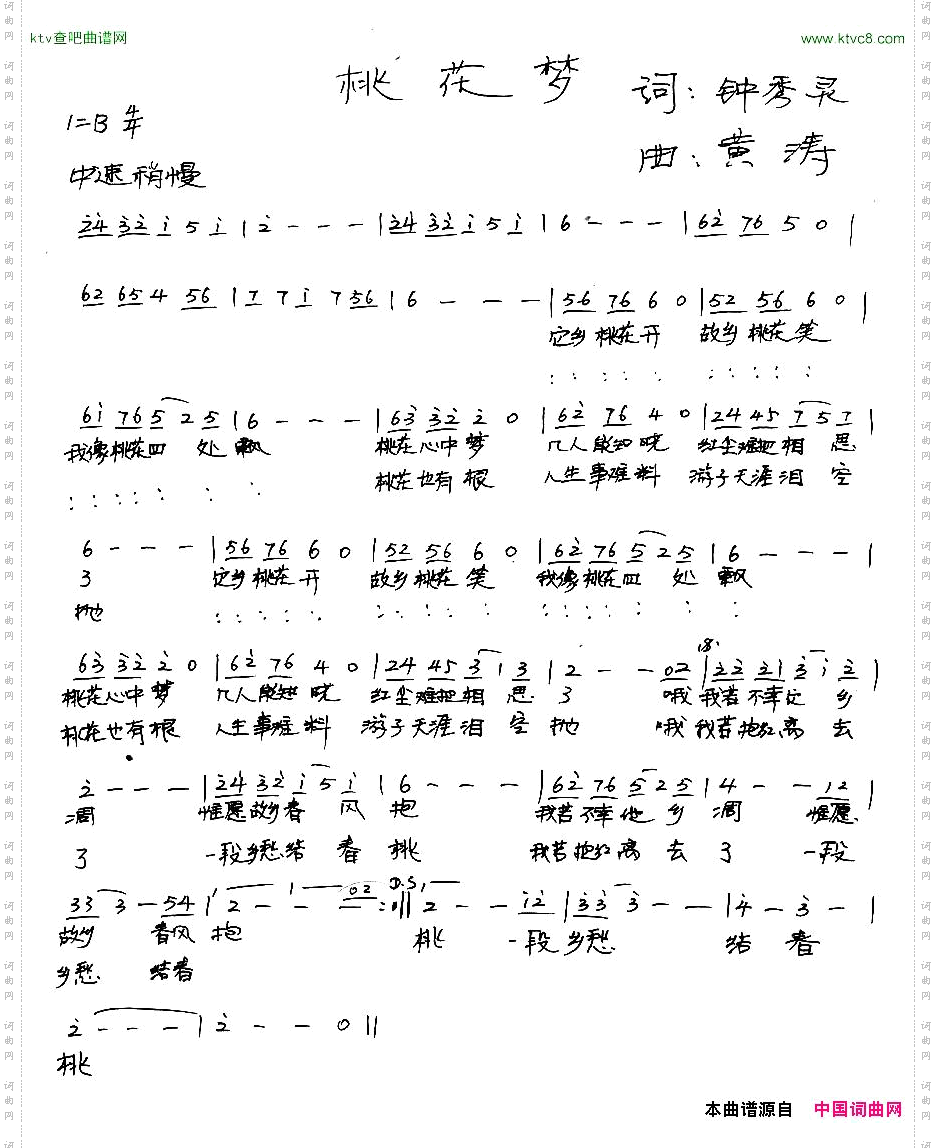 ktv查吧曲谱网
www.ktvc8.com
桃花梦
词：钟秀灵
曲：黄涛
1=B 4/4
中速稍慢
24 32 1 5 1 | 2 - - - | 24 32 1 5 1 | 6 - - - | 62 76 5 0 |
62 65 4 56 | 7 7 1 7 56 | 6 - - - | 56 76 6 0 | 52 56 6 0 |
桃花开 故乡 桃花笑
61 76 5 2 5 | 6 - - - | 63 32 2 0 | 62 76 4 0 | 24 45 7 5 7 |
我像桃花四处飘 桃花心中梦 几人能知晓 红尘难把相思
桃花也有根 人生事难料 游子天涯泪空
6 - - - | 56 76 6 0 | 52 56 6 0 | 62 76 5 2 5 | 6 - - - |
了 桃花开 故乡桃花笑 我像桃花四处飘
抛
63 32 2 0 | 62 76 4 0 | 24 45 3 1 3 | 2 - - 02 | 22 22 3 1 2 |
桃花心中梦 几人能知晓 红尘难把相思了 哦 我若不幸 乡
桃花也有根 人生事难料 游子天涯泪空抛 哦 我若抱红离去
2 - - - | 24 32 1 5 1 | 6 - - - | 62 76 5 2 5 | 4 - - 12 |
凋 惟愿故乡春风抱 我若不幸他乡凋 惟愿
了 一段乡愁结春桃 我若抱红离去了 一段
33 3 - 54 | 2 - - - 02 :|| D.S. 2 - - 12 | 33 3 - - | 4 - 3 - |
故乡 春风抱 桃 一段乡愁 结春
乡愁 结春
2 - - - | 2 - - 0 ||
桃
本曲谱源自 中国词曲网